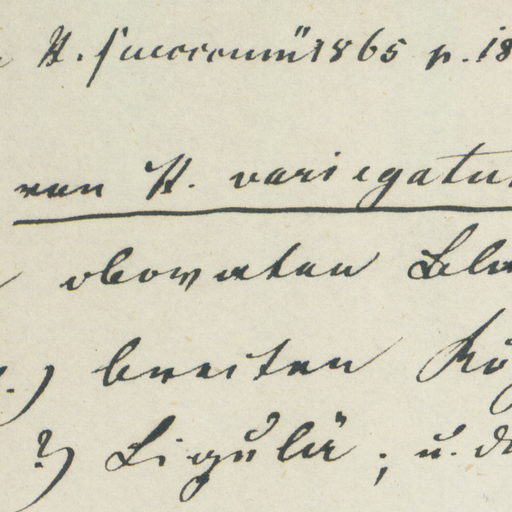 H. 1865 p. 18
von H. variegatu
obovaten Bla
breiten Kö
?) Ligulä; u. d